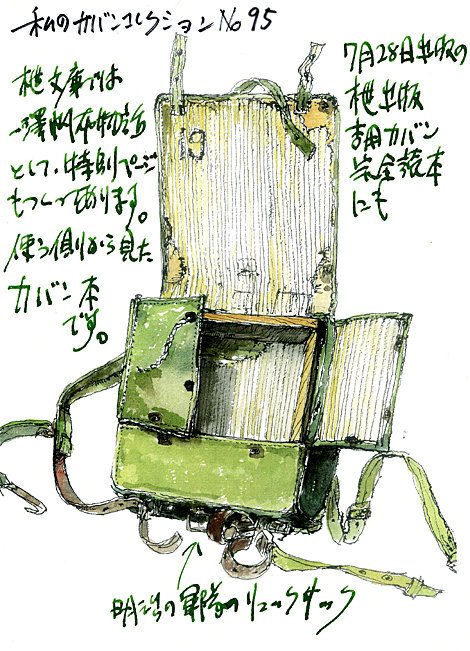 私のカバンコレクション No 95
枻文庫では
一澤帆布物語
として、特別ページ
もつくってあります。
使う側から見た
カバン本
です。
7月28日出版の
枻出版
吉田カバン
完全読本
にも
明治の軍隊のリュックサック